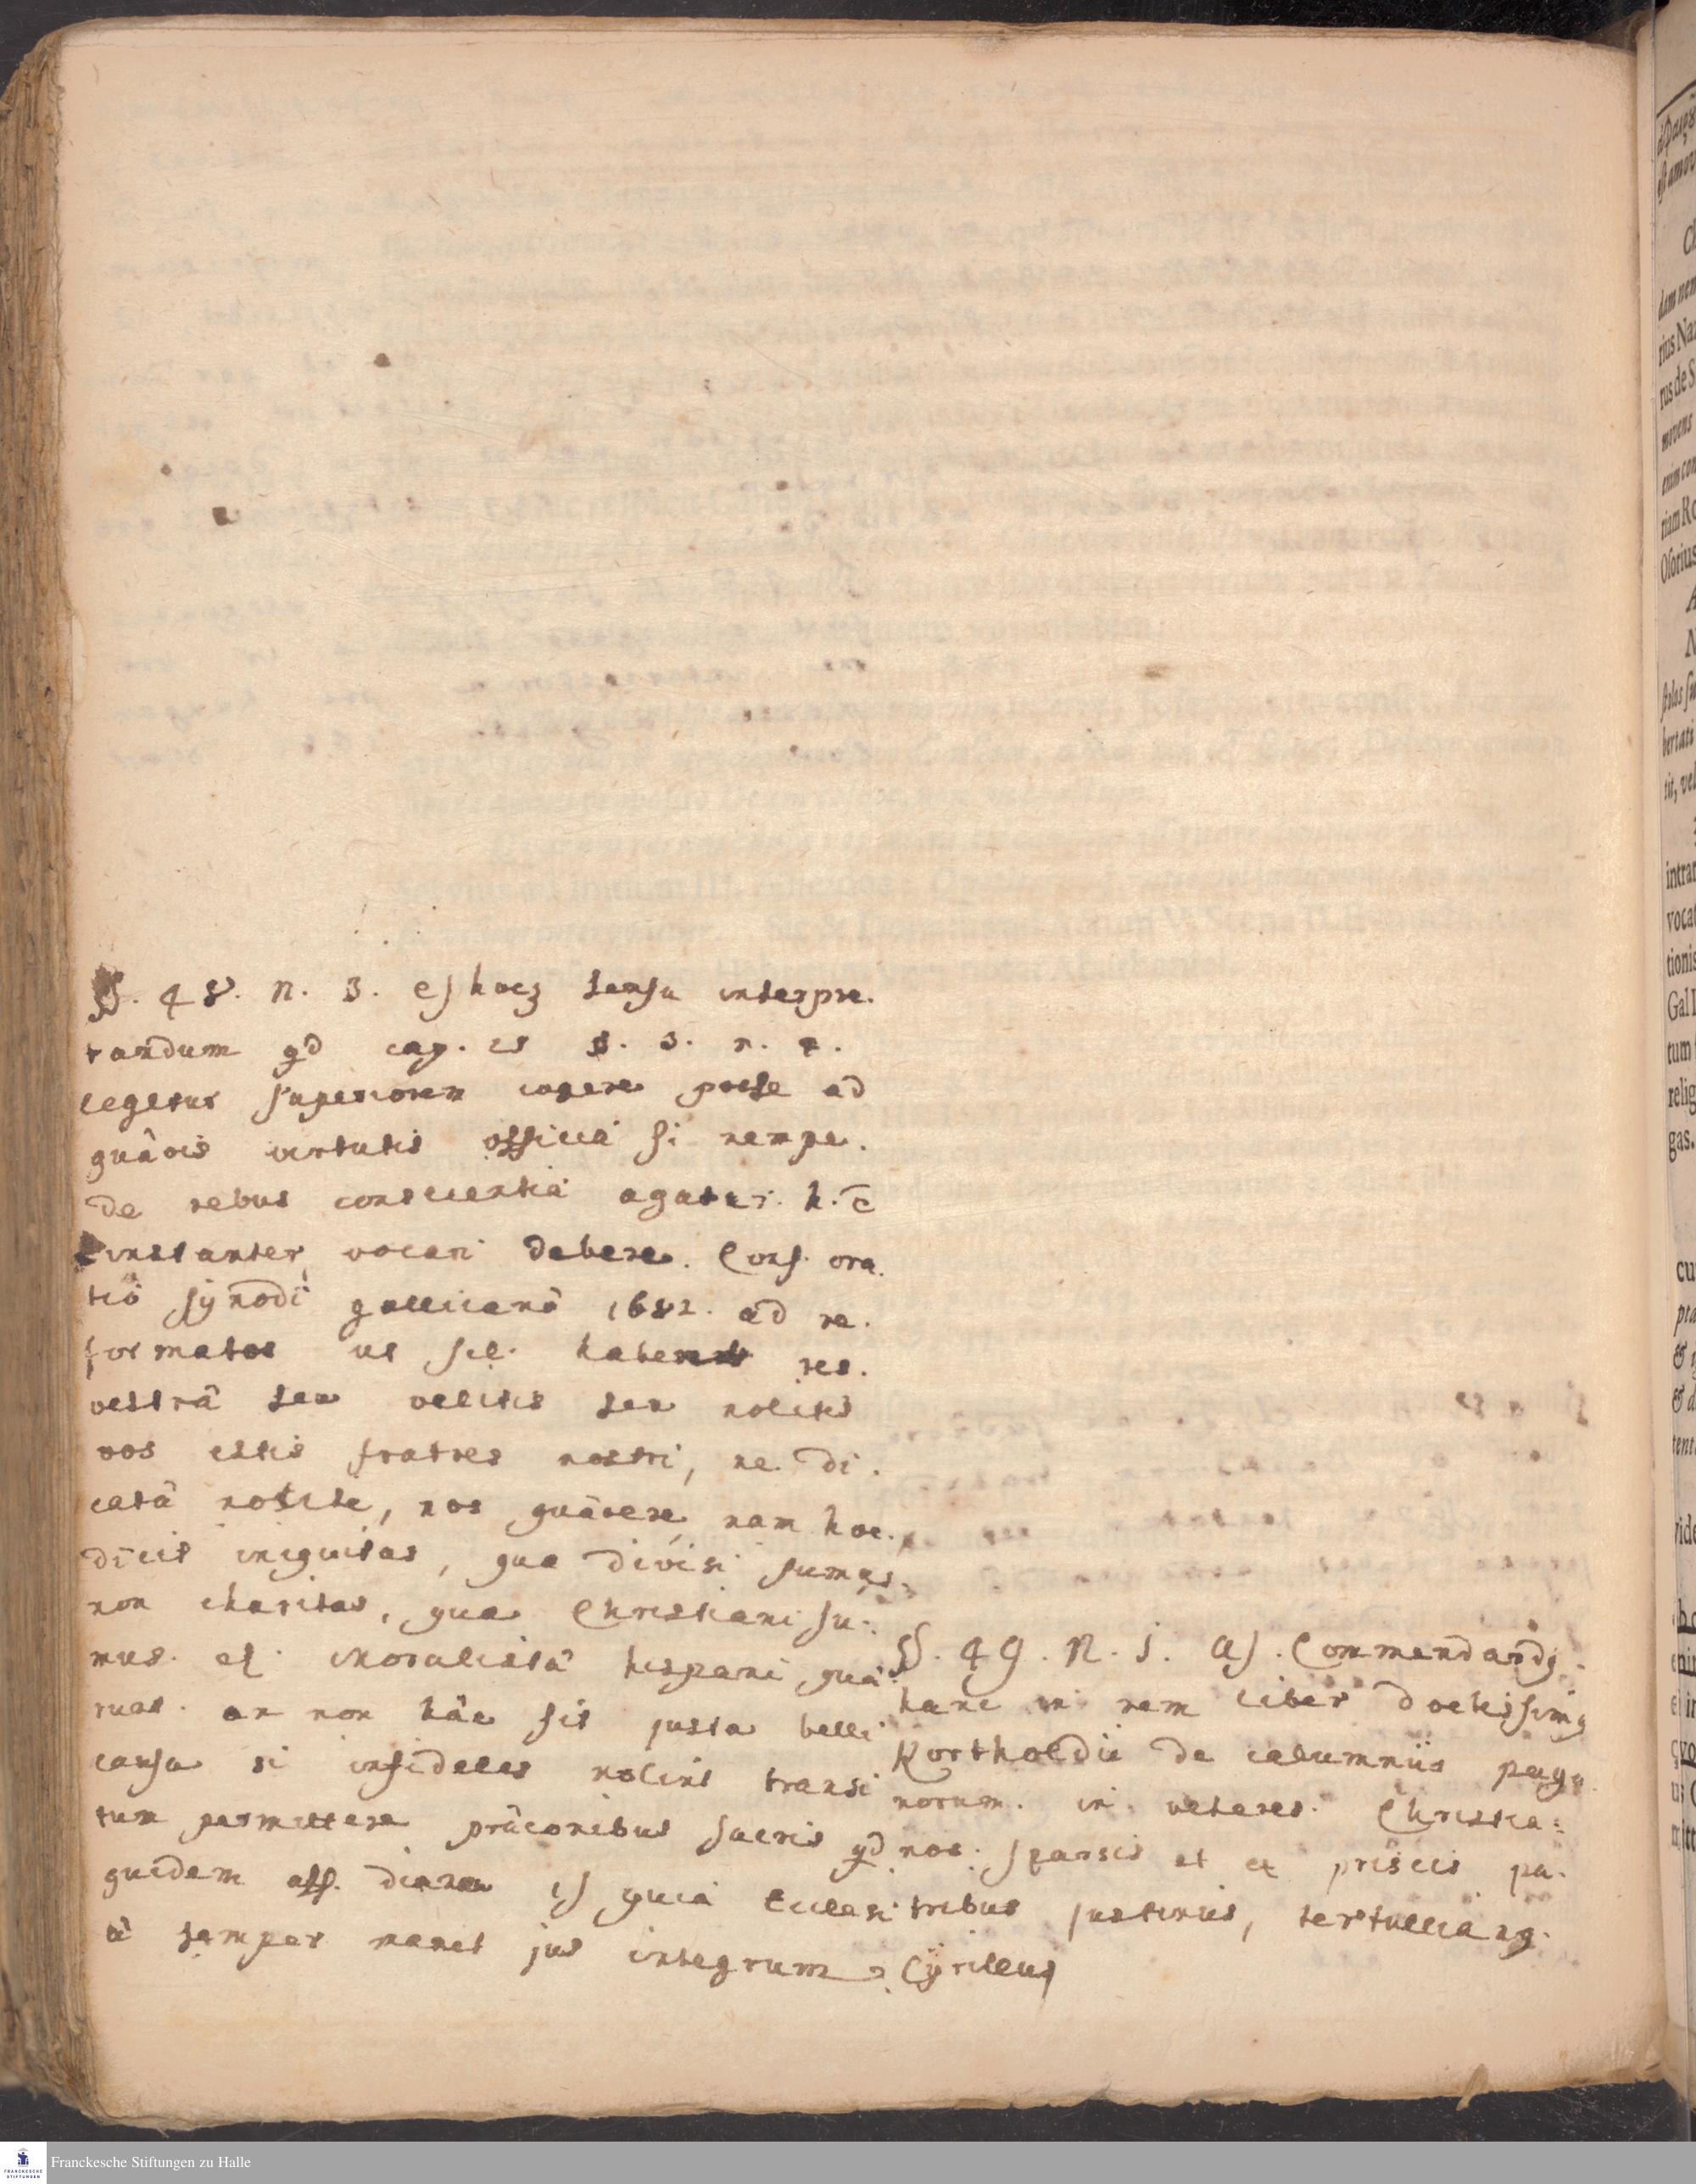 §. 48. n. 3. e) hocq sensu interpre.
tandum qd cap. 21 §. 3. n. 2.
legetur superiorem cogere posse ad
quâvis virtutis officia si nempe.
de rebus conscientiâ agatur. h. e
instanter vocari debere. Conf. ora.
tiõ synodi gallicanâ 1682. ad re.
formatos ut sil. habent res.
vestrâ seu velitis seu nolitis
vos estis fratres nostri, ne di.
catâ nobis, nos quârere, nam hoc.
dicit iniquitas, qua divisi sumus.
non charitas, qua Christiani su.
mus. et. moralistâ hispani quâ
runt. an non hâc sit justa belli
causa si infideles nolint transi
tum permittere prâconibus sacris qd
quidem aff. diana i) quia Ecclesi
â semper manet jus integrum
§. 49. N. 1. a). Commendandq.
hanc in rem liber doctissimq
Kortholdii de calumniis paga
norum. in veteres. Christia:
nos. sparsis et ex priscis pa.
tribus justinus, tertullianq.
Cyrillus
Franckesche Stiftungen zu Halle